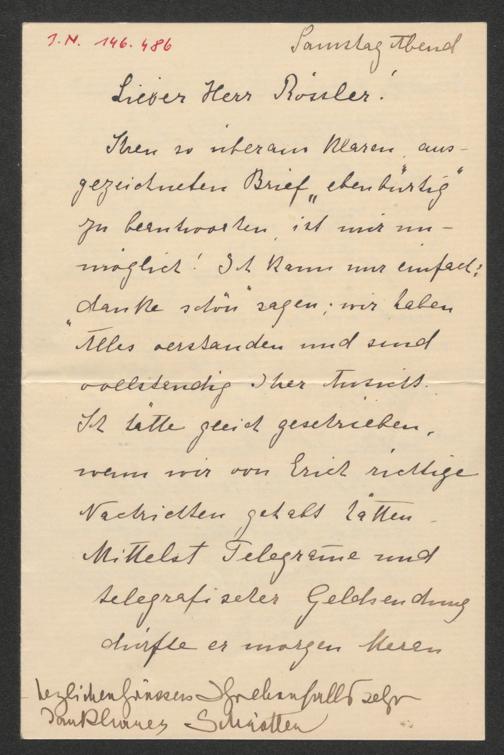 I.N. 146.486
Samstag Abend
Lieber Herr Rössler!
Ihren so überaus klaren, aus-
gezeichneten Brief „ebenbürtig"
zu beantworten, ist mir un-
möglich! Ich kann nur einfach:
„danke schön" sagen; wir haben
Alles verstanden und sind
vollständig Ihrer Ansicht.
Ich hätte gleich geschrieben,
wenn wir von Erich richtige
Nachrichten gehabt hätten.
Mittelst Telegrame und
telegrafischer Geldsendung
dürfte er morgen
herzlichen Grüssen Ihr ebenfalls sehr
dankbarer